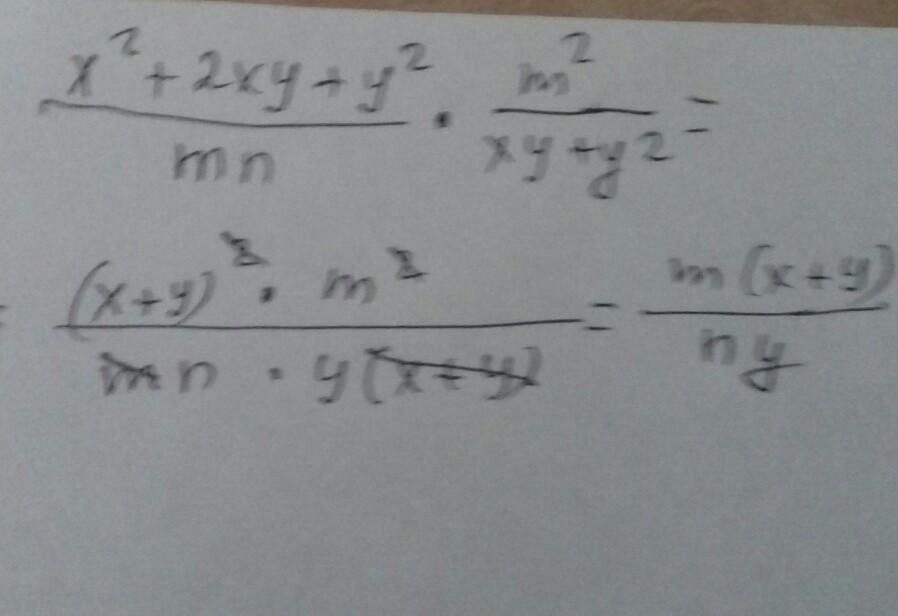 x² + 2xy + y² / mn · m² / xy + y² =
= (x+y)² · m² / mn · y(x+y) = m(x+y) / ny